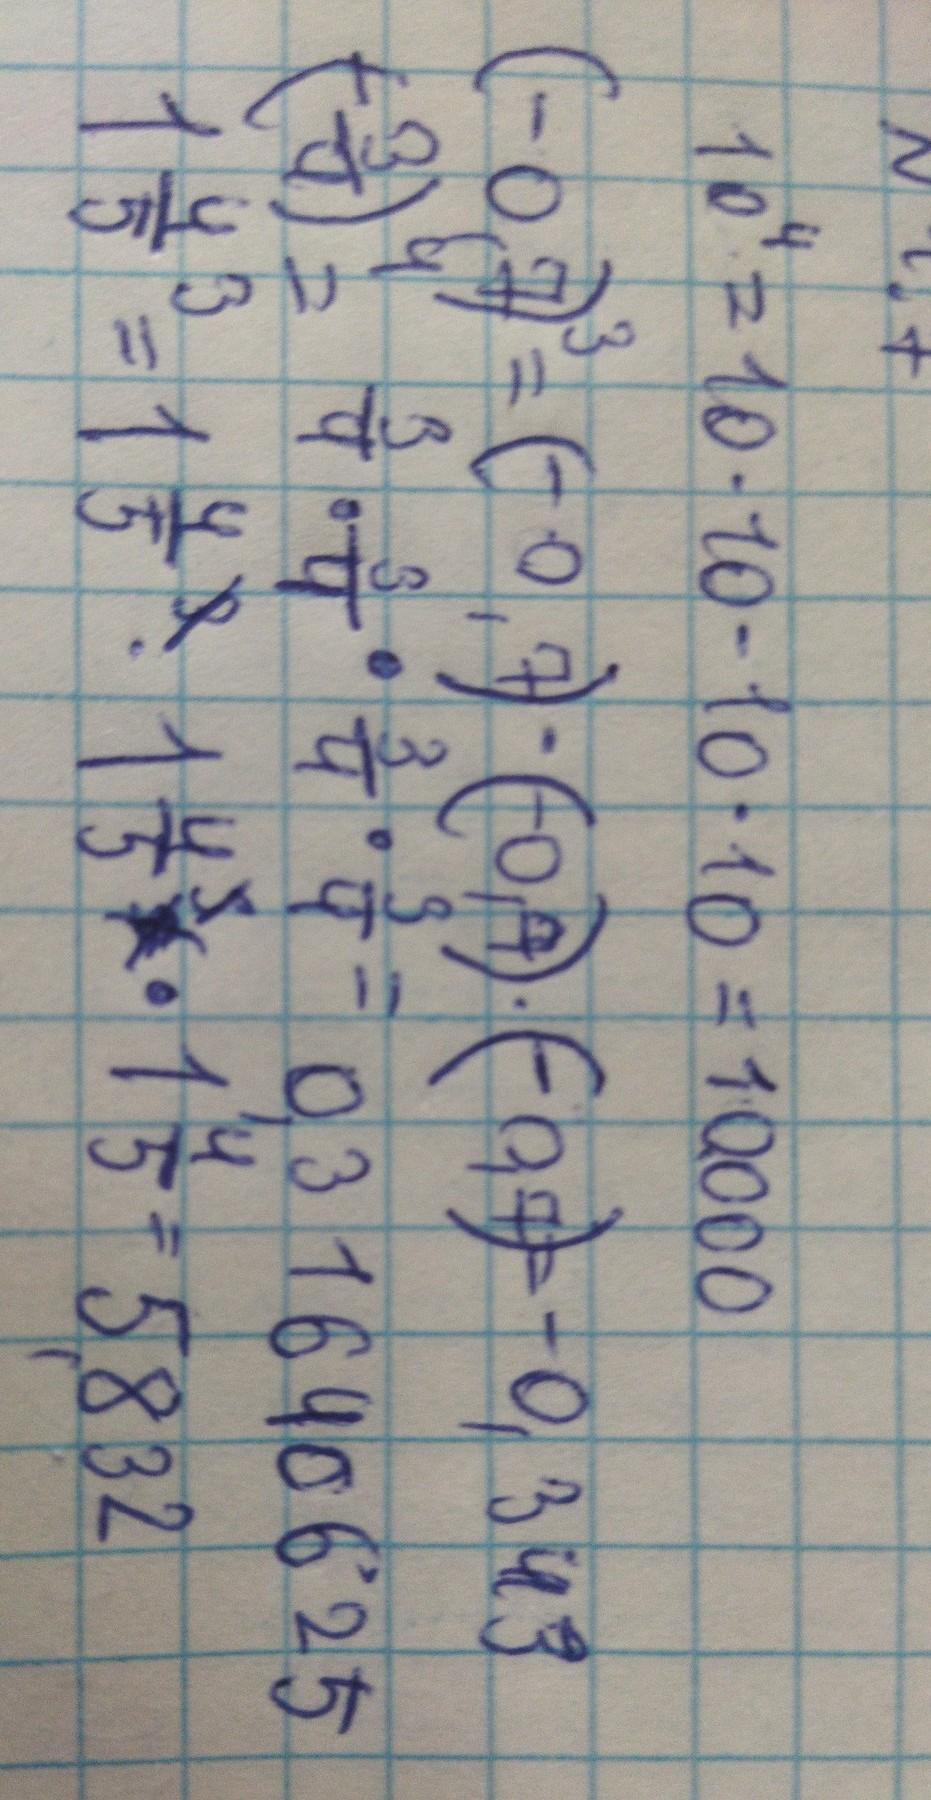 10⁴ = 10 · 10 · 10 · 10 = 10000
(-0,7)³ = (-0,7) · (-0,7) · (-0,7) = -0,343
(-3/4)⁴ = 3/4 · 3/4 · 3/4 · 3/4 = 0,31640625
1 4/5³ = 1 4/5 · 1 4/5 · 1 4/5 = 5,832